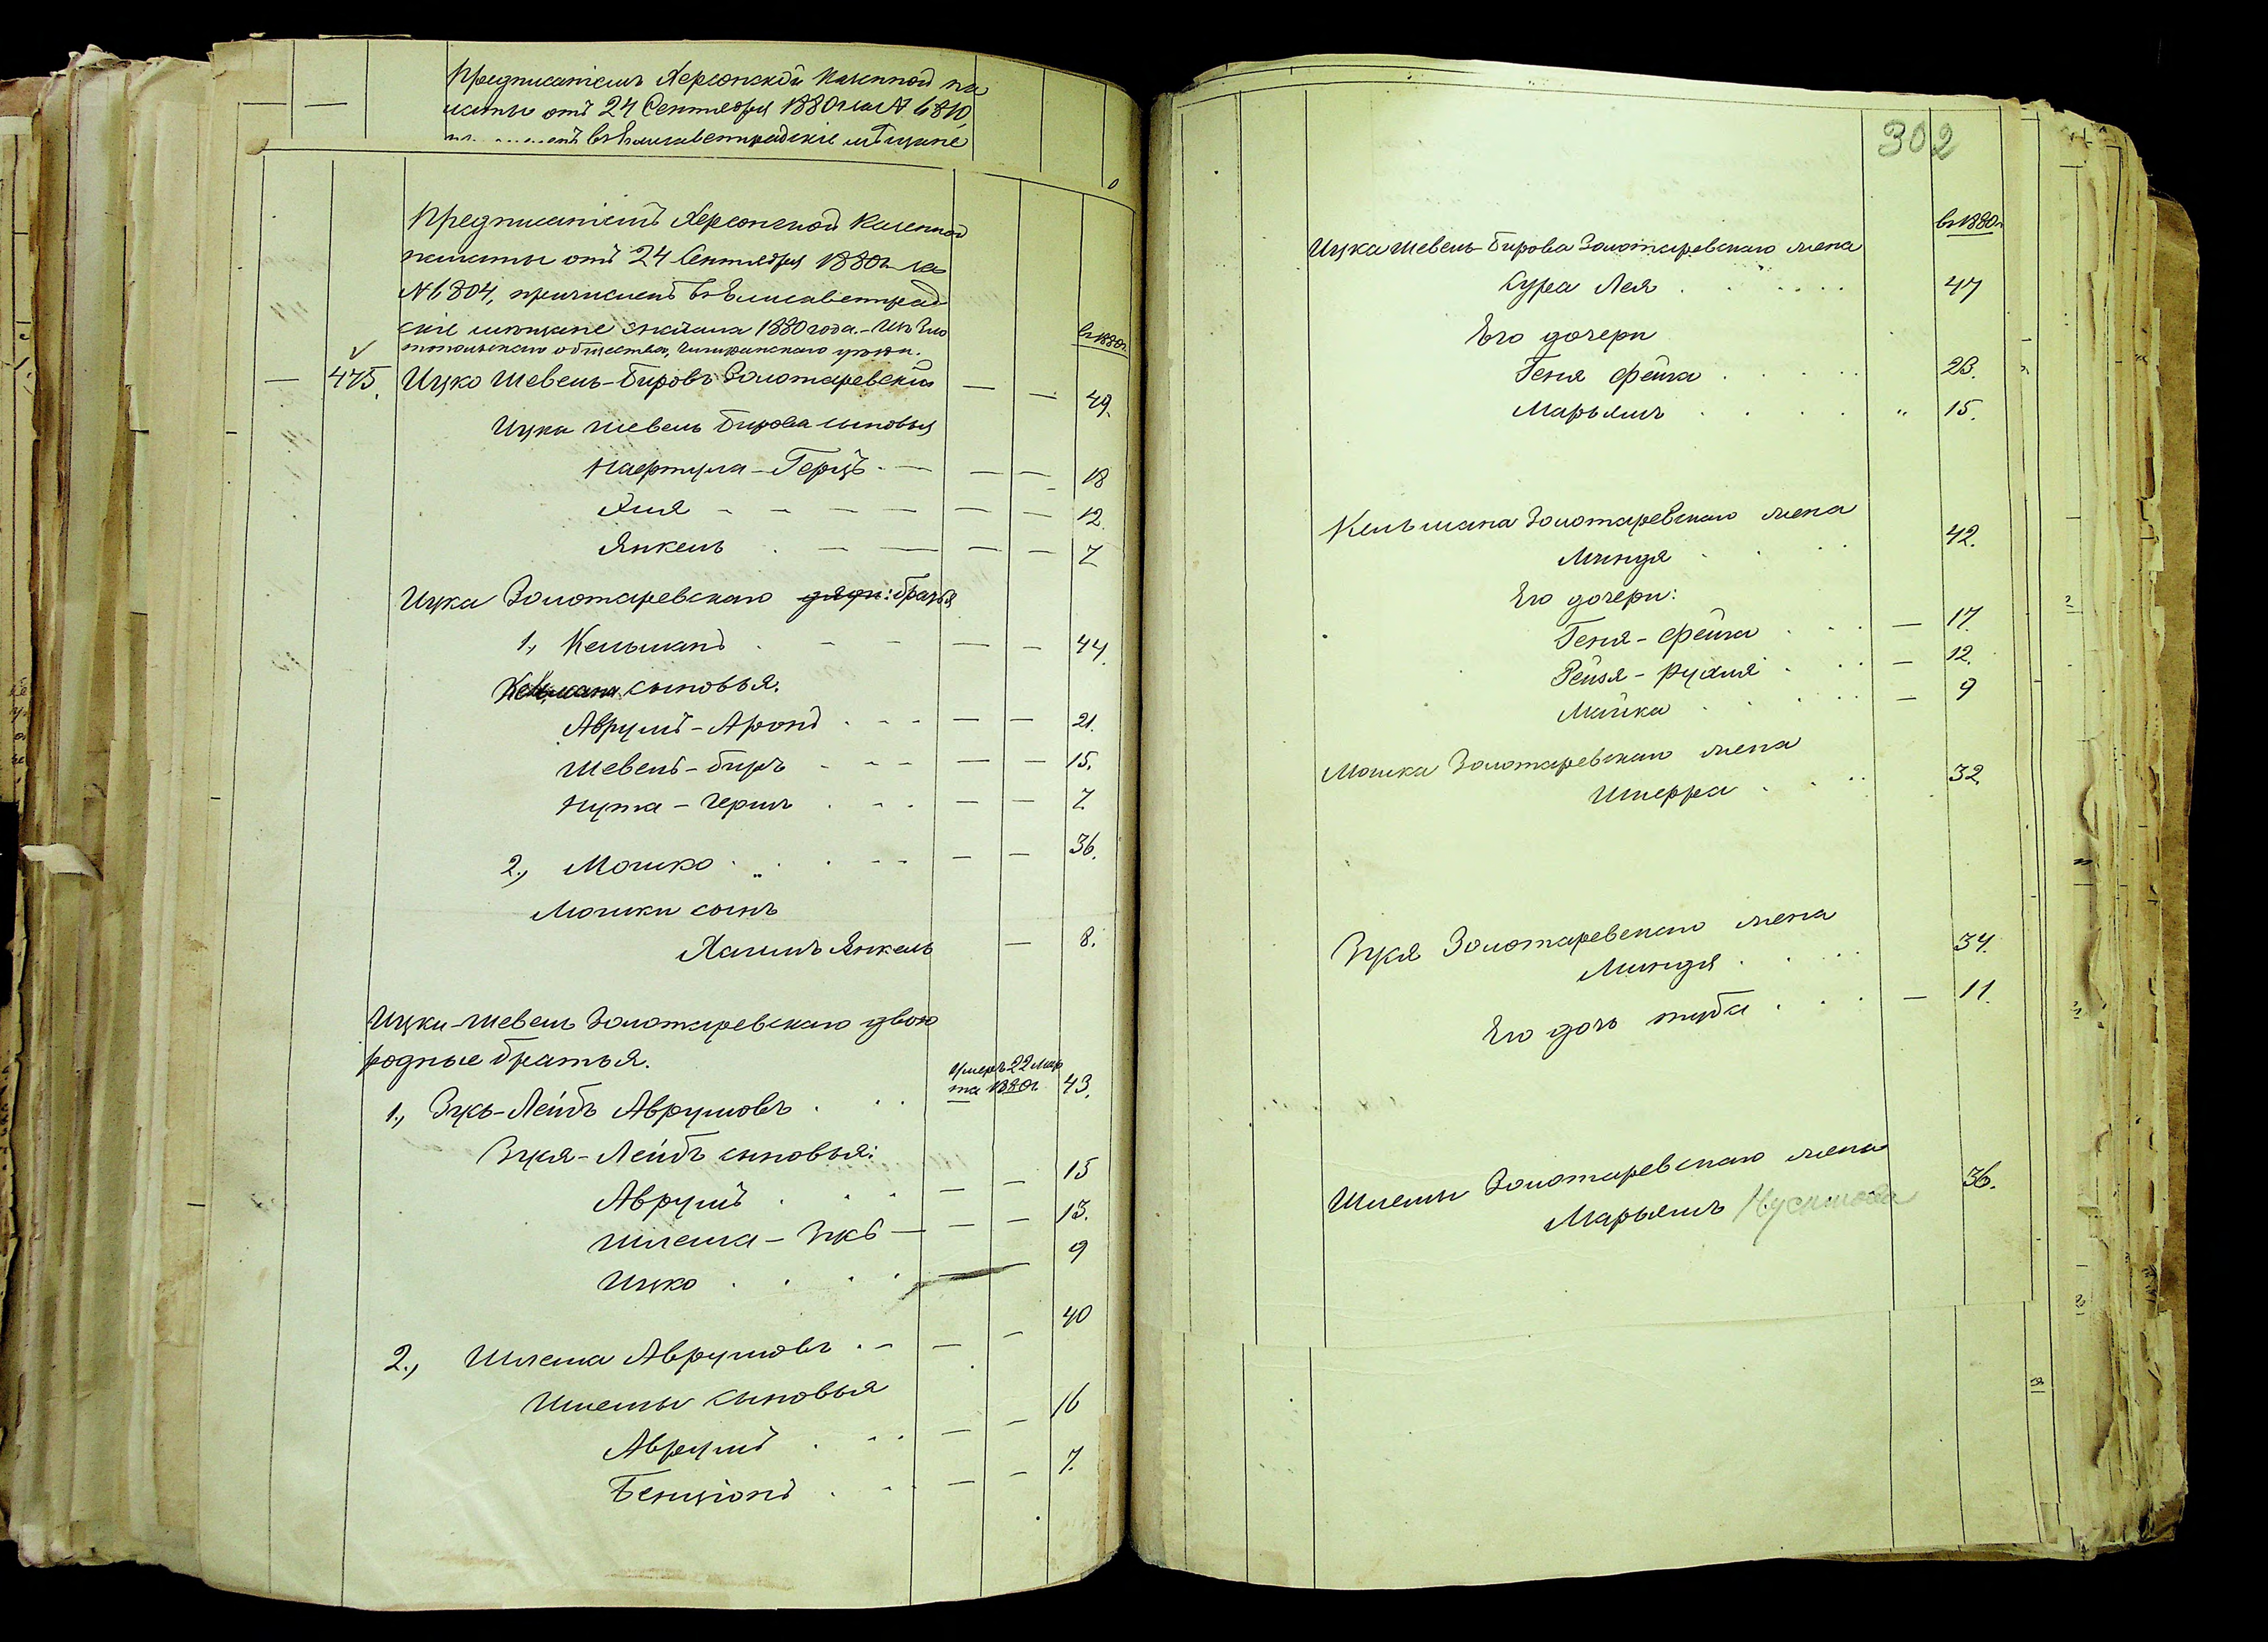 Предписаніемъ Херсонской Казенной па
латы отъ 24 Сентября 1880 г. за № 6810,
въ Елисаветградскіе мѣщане
Предписаніемъ Херсонской Казенной
палаты отъ 24 Сентября 1880 г. за
№ 6804, причисленъ въ Елисаветград
скіе мѣщане сначала 1880 года. – Изъ Зло
топольскаго общества, Чигиринскаго уѣзда.
в 1880 г.
— 475. Ицко Шевель-Бировъ Золотаревскій — — 49.
Ицка Шевель Бирова сыновья
Нафтула – Герцъ — — — 18
Хиля — — — 12.
Янкель — — — 7
Ицка Золотаревскаго дяди: братья
1., Кельманъ — — 44.
Кельмана сыновья.
Аврумъ – Аронъ — — 21.
Шевель – биръ — — 15.
Нута – Герша — — 7.
2., Мошко — — 36.
Мошки сынъ
Хаимъ Янкель — 8.
Ицки-Шевель Золотаревскаго двою
родные братья.
Умеръ 22 Мар
та 1880 г.
1., Зусь-Лейбъ Аврумовъ 43.
Зуся-Лейбъ сыновья:
Аврумъ — — 15
Шлема – Зусь — — — 13.
Ицко — — 9
2., Шлема Аврумовъ — — 40
Шлемы сыновья
Аврумъ — — 16
Бенціонъ — — 7.
302
в 1880 г.
Ицка Шевель-Бирова Золотаревскаго жена
Сура Лея 47
Его дочери
Геня Фейга 23.
Марьямъ " 15.
Кельмана Золотаревскаго жена
Миндя 42.
Его дочери:
Геня – Фейга — 17.
Рейзя – Рухля — 12.
Майка — 9
Мошка Золотаревскаго жена
Шперра 32
Зуся Золотаревскаго жена
Миндя 34.
Его дочь туба — 11.
Шлемы Золотаревскаго жена
Марьямъ Нусимова 36.